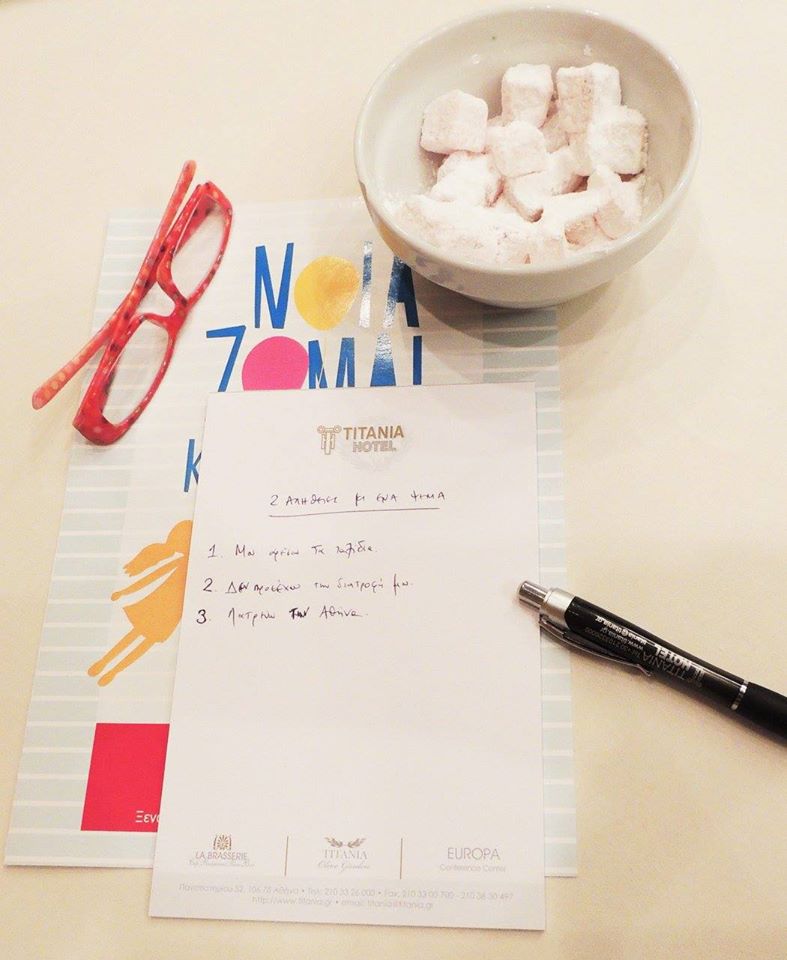 ΝΟΙΑ
ΖΟΜΑΙ
Κ
TITANIA
HOTEL
2 ΑΛΗΘΕΙΕΣ ΚΙ ΕΝΑ ΨΕΜΑ
1. Μου αρέσουν τα ταξίδια.
2. Δεν προσέχω την διατροφή μου.
3. Λατρεύω την Αθήνα.
TITANIA HOTEL
www.titania.gr
Ξενο
LA BRASSERIE
TITANIA
Olive Garden
EUROPA
Conference Center
Πανεπιστημίου 52, 106 78 Αθήνα • Τηλ: 210 33 26 000 • Fax: 210 33 00 700 - 210 38 30 497
http://www.titania.gr • email: titania@titania.gr